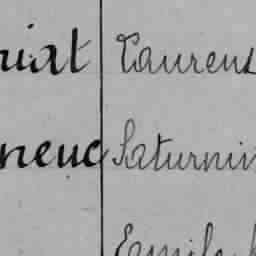 uiat Laurens
neuc Saturnin
Emile